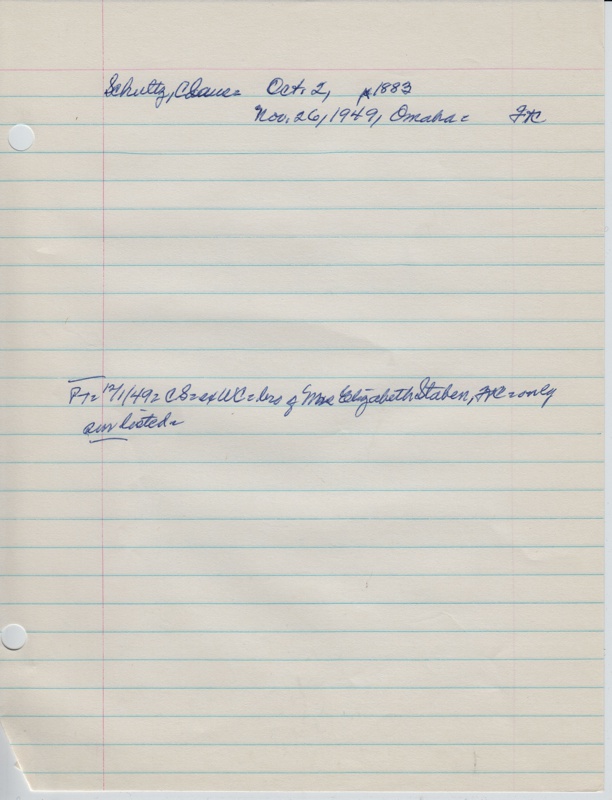 Schultz, Claus= Oct. 2, 1883
Nov. 26, 1949, Omaha= FK
PT= 12/1/49= CS= ex WC= bro of Mrs Elizabeth Staben, FK= only
sur listed=